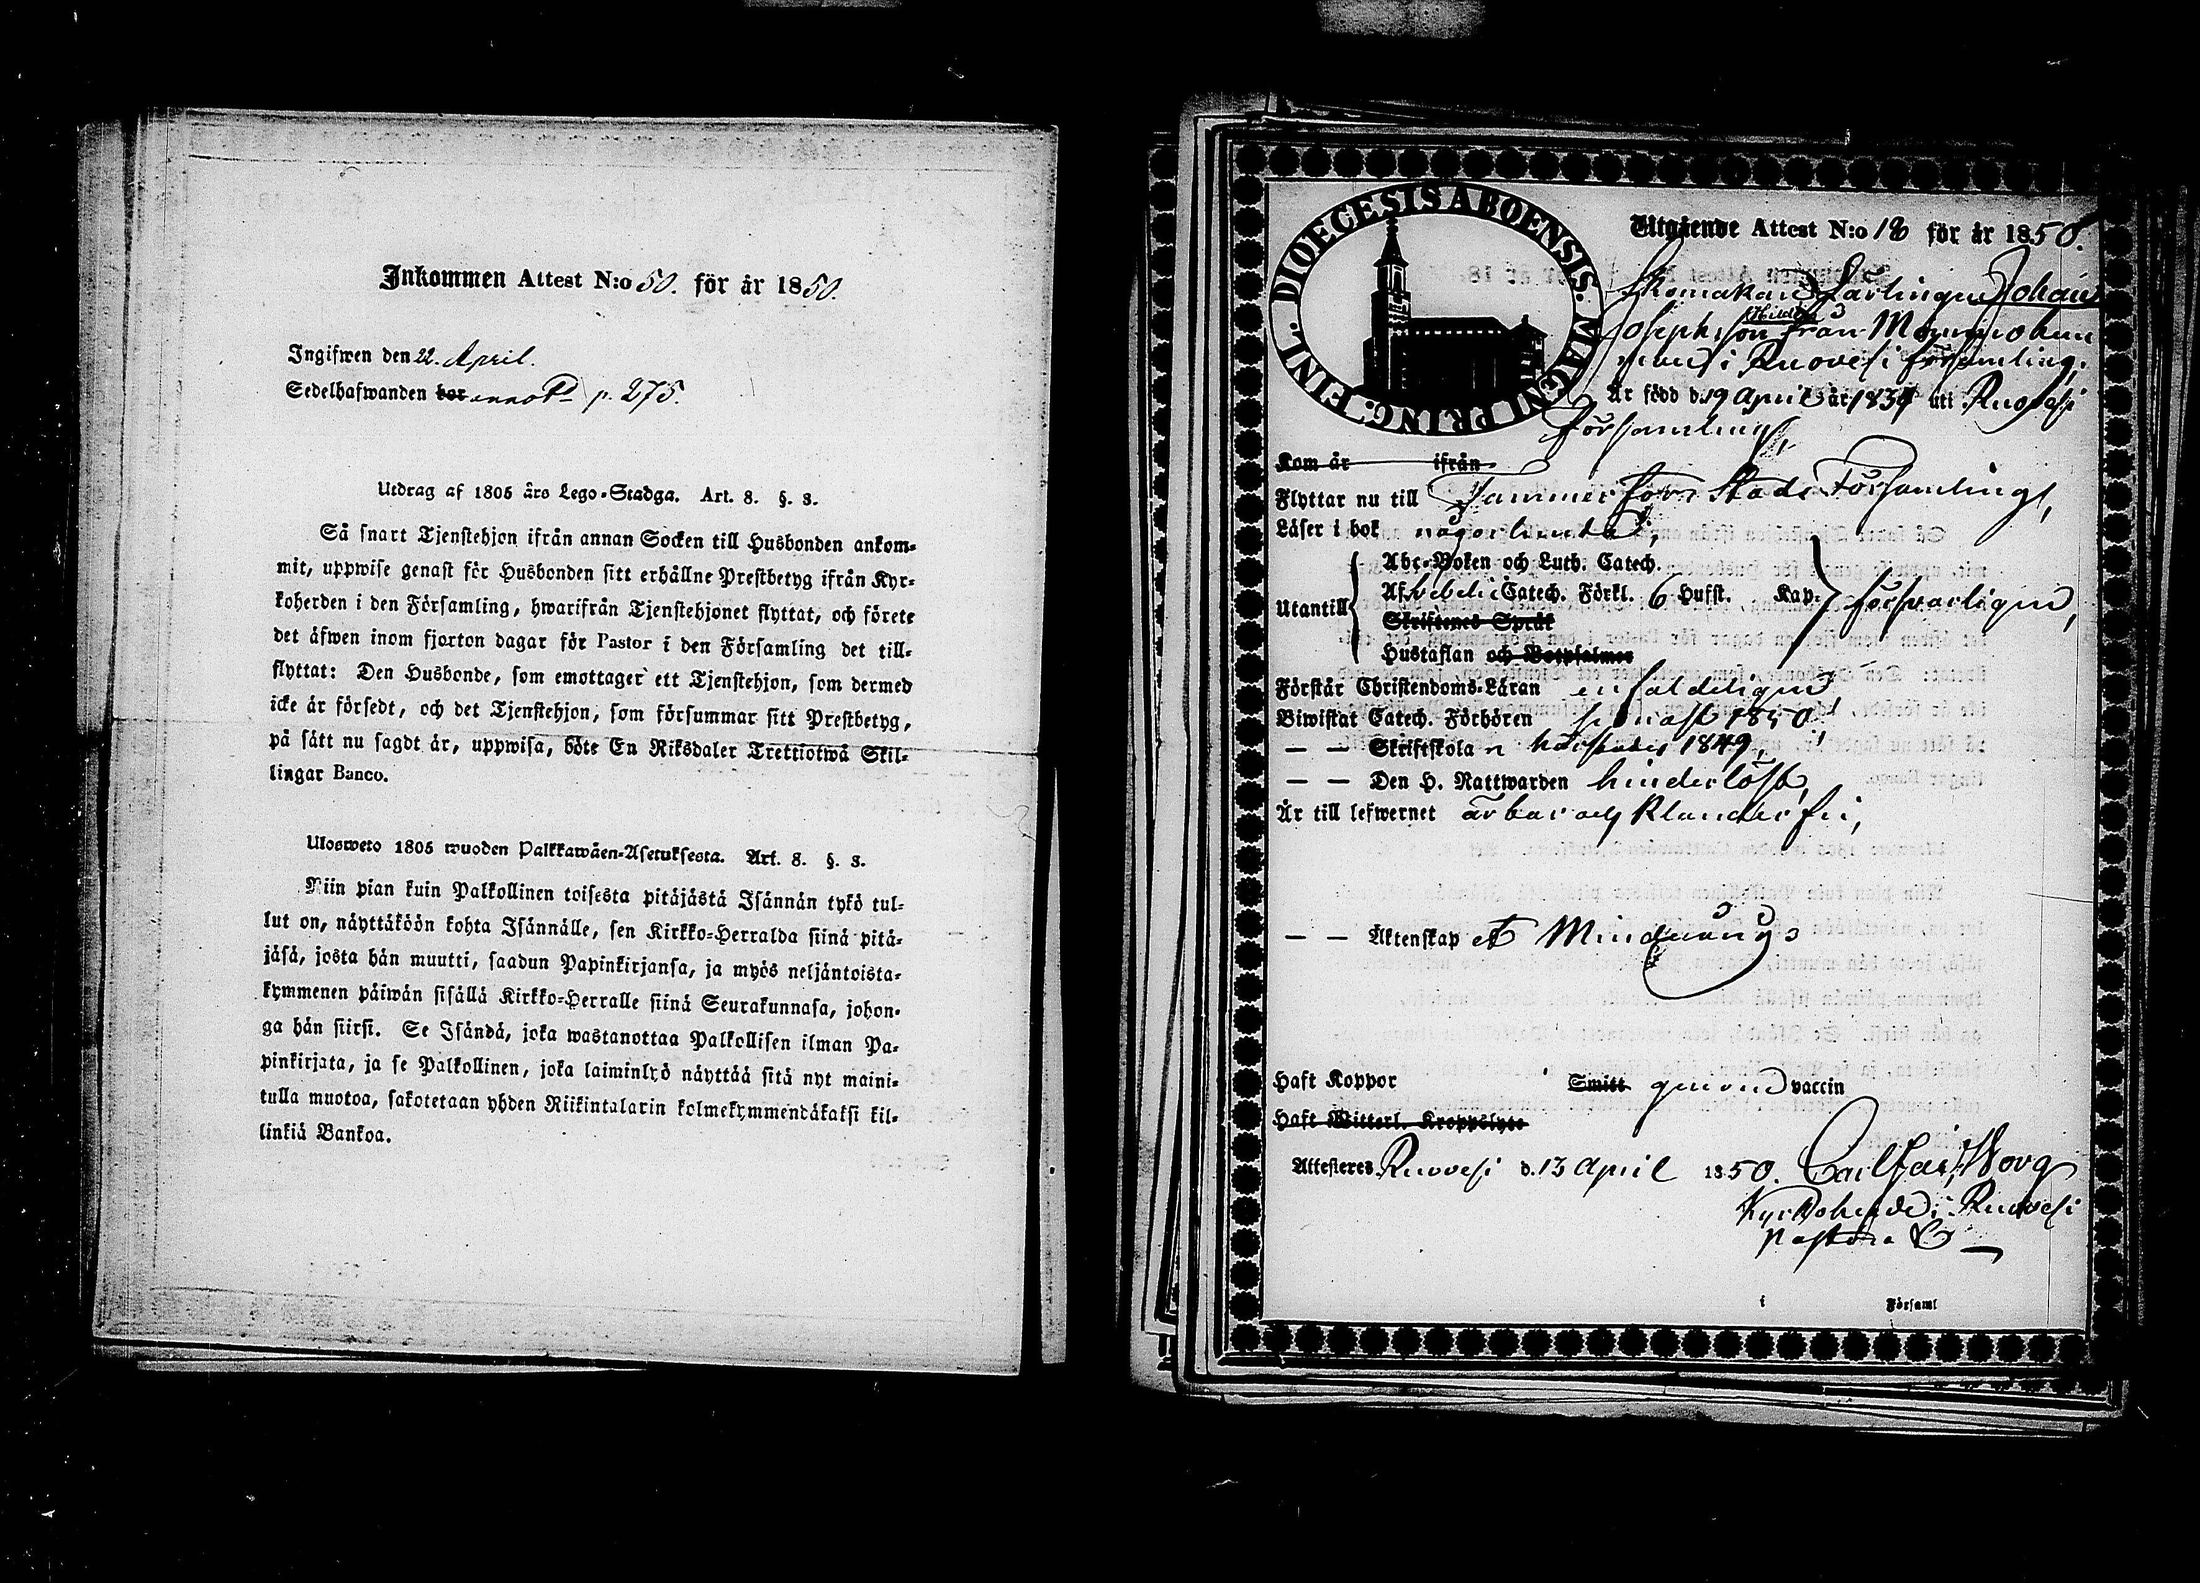 Inkommen Attest N:o 50. för år 1850.
Ingifwen den 22. April.
Sedelhafwanden bor annot. p. 275.
Utdrag af 1805 års Lego-Stadga. Art. 8. §. 3.
Så snart Tjenstehjon ifrån annan Socken till Husbonden ankom-
mit, uppwise genast för Husbonden sitt erhållne Prestbetyg ifrån Kyr-
koherden i den Församling, hwarifrån Tjenstehjonet flyttat, och förete
det äfwen inom fjorton dagar för Pastor i den Församling det till-
flyttat: Den Husbonde, som emottager ett Tjenstehjon, som dermed
icke är försedt, och det Tjenstehjon, som försummar sitt Prestbetyg,
på sätt nu sagdt är, uppwisa, böte En Riksdaler Trettiotwå Skil-
lingar Banco.
Ulosweto 1805 wuoden Palkkawäen-Asetuksesta. Art. 8. §. 3.
Niin pian kuin Palkollinen toisesta pitäjästä Isännän tykö tul-
lut on, näyttäköön kohta Isännälle, sen Kirkko-Herralda siinä pitä-
jäsä, josta hän muutti, saadun Papinkirjansa, ja myös neljäntoista-
kymmenen päiwän sisällä Kirkko-Herralle siinä Seurakunnasa, johon-
ga hän siirsi. Se Isändä, joka wastanottaa Palkollisen ilman Pa-
pinkirjata, ja se Palkollinen, joka laiminlyö näyttää sitä nyt maini-
tulla muotoa, sakotetaan yhden Riikintalarin kolmekymmendäkaksi kil-
linkiä Bankoa.
DIOECESIS ABOENSIS. MAGNI PRINC. FINL.
Utgående Attest N:o 18 för år 1850.
Skomakare Lärlingen Johan
Josephsson från
i Ruovesi församling,
Är född d. 19 April år 1834 uti Ruovesi
Församling,
Kom år ifrån
Flyttar nu till Tammerfors Stads Församling,
Läser i bok någorlunda,
Utantill Abc-Boken och Luth. Catech.
Afhebelii Catech. Förkl. 6 Hufst. Kap. försvarligen,
Skriftenes Språk
Hustaflan och Botpsalmer
Förstår Christendoms-Läran enfaldeligen,
Biwistat Catech. Förhören senast 1850,
— — Skriftskolan 1849,
— — Den H. Nattwarden hinderlöst,
Är till lefwernet ärbar och klanderfri,
— — Äktenskap
Haft Koppor Smitt genom vaccin
Haft Witterl. Kroppslyte
Attesteres Ruovesi d. 13 April 1850. Borg
Kyrkoherde i Ruovesi
Pastorat
i Församl